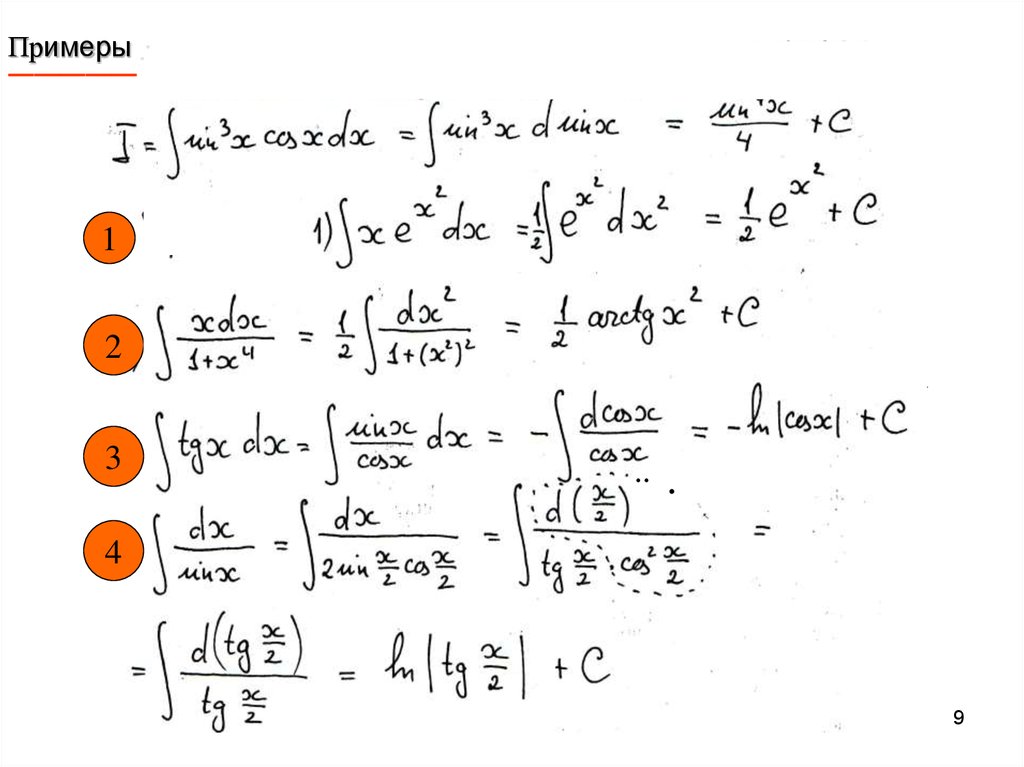 Примеры
I = ∫ sin³x cosx dx = ∫ sin³x d sinx = sin⁴x/4 + C
1 1) ∫ x e^(x²) dx = 1/2 ∫ e^(x²) dx² = 1/2 e^(x²) + C
2 ∫ xdx/(1+x⁴) = 1/2 ∫ dx²/(1+(x²)²) = 1/2 arctg x² + C
3 ∫ tgx dx = ∫ sinx/cosx dx = -∫ dcosx/cosx = -ln|cosx| + C
4 ∫ dx/sinx = ∫ dx/(2sin x/2 cos x/2) = ∫ d(x/2)/(tg x/2 · cos² x/2) =
= ∫ d(tg x/2)/(tg x/2) = ln|tg x/2| + C
9